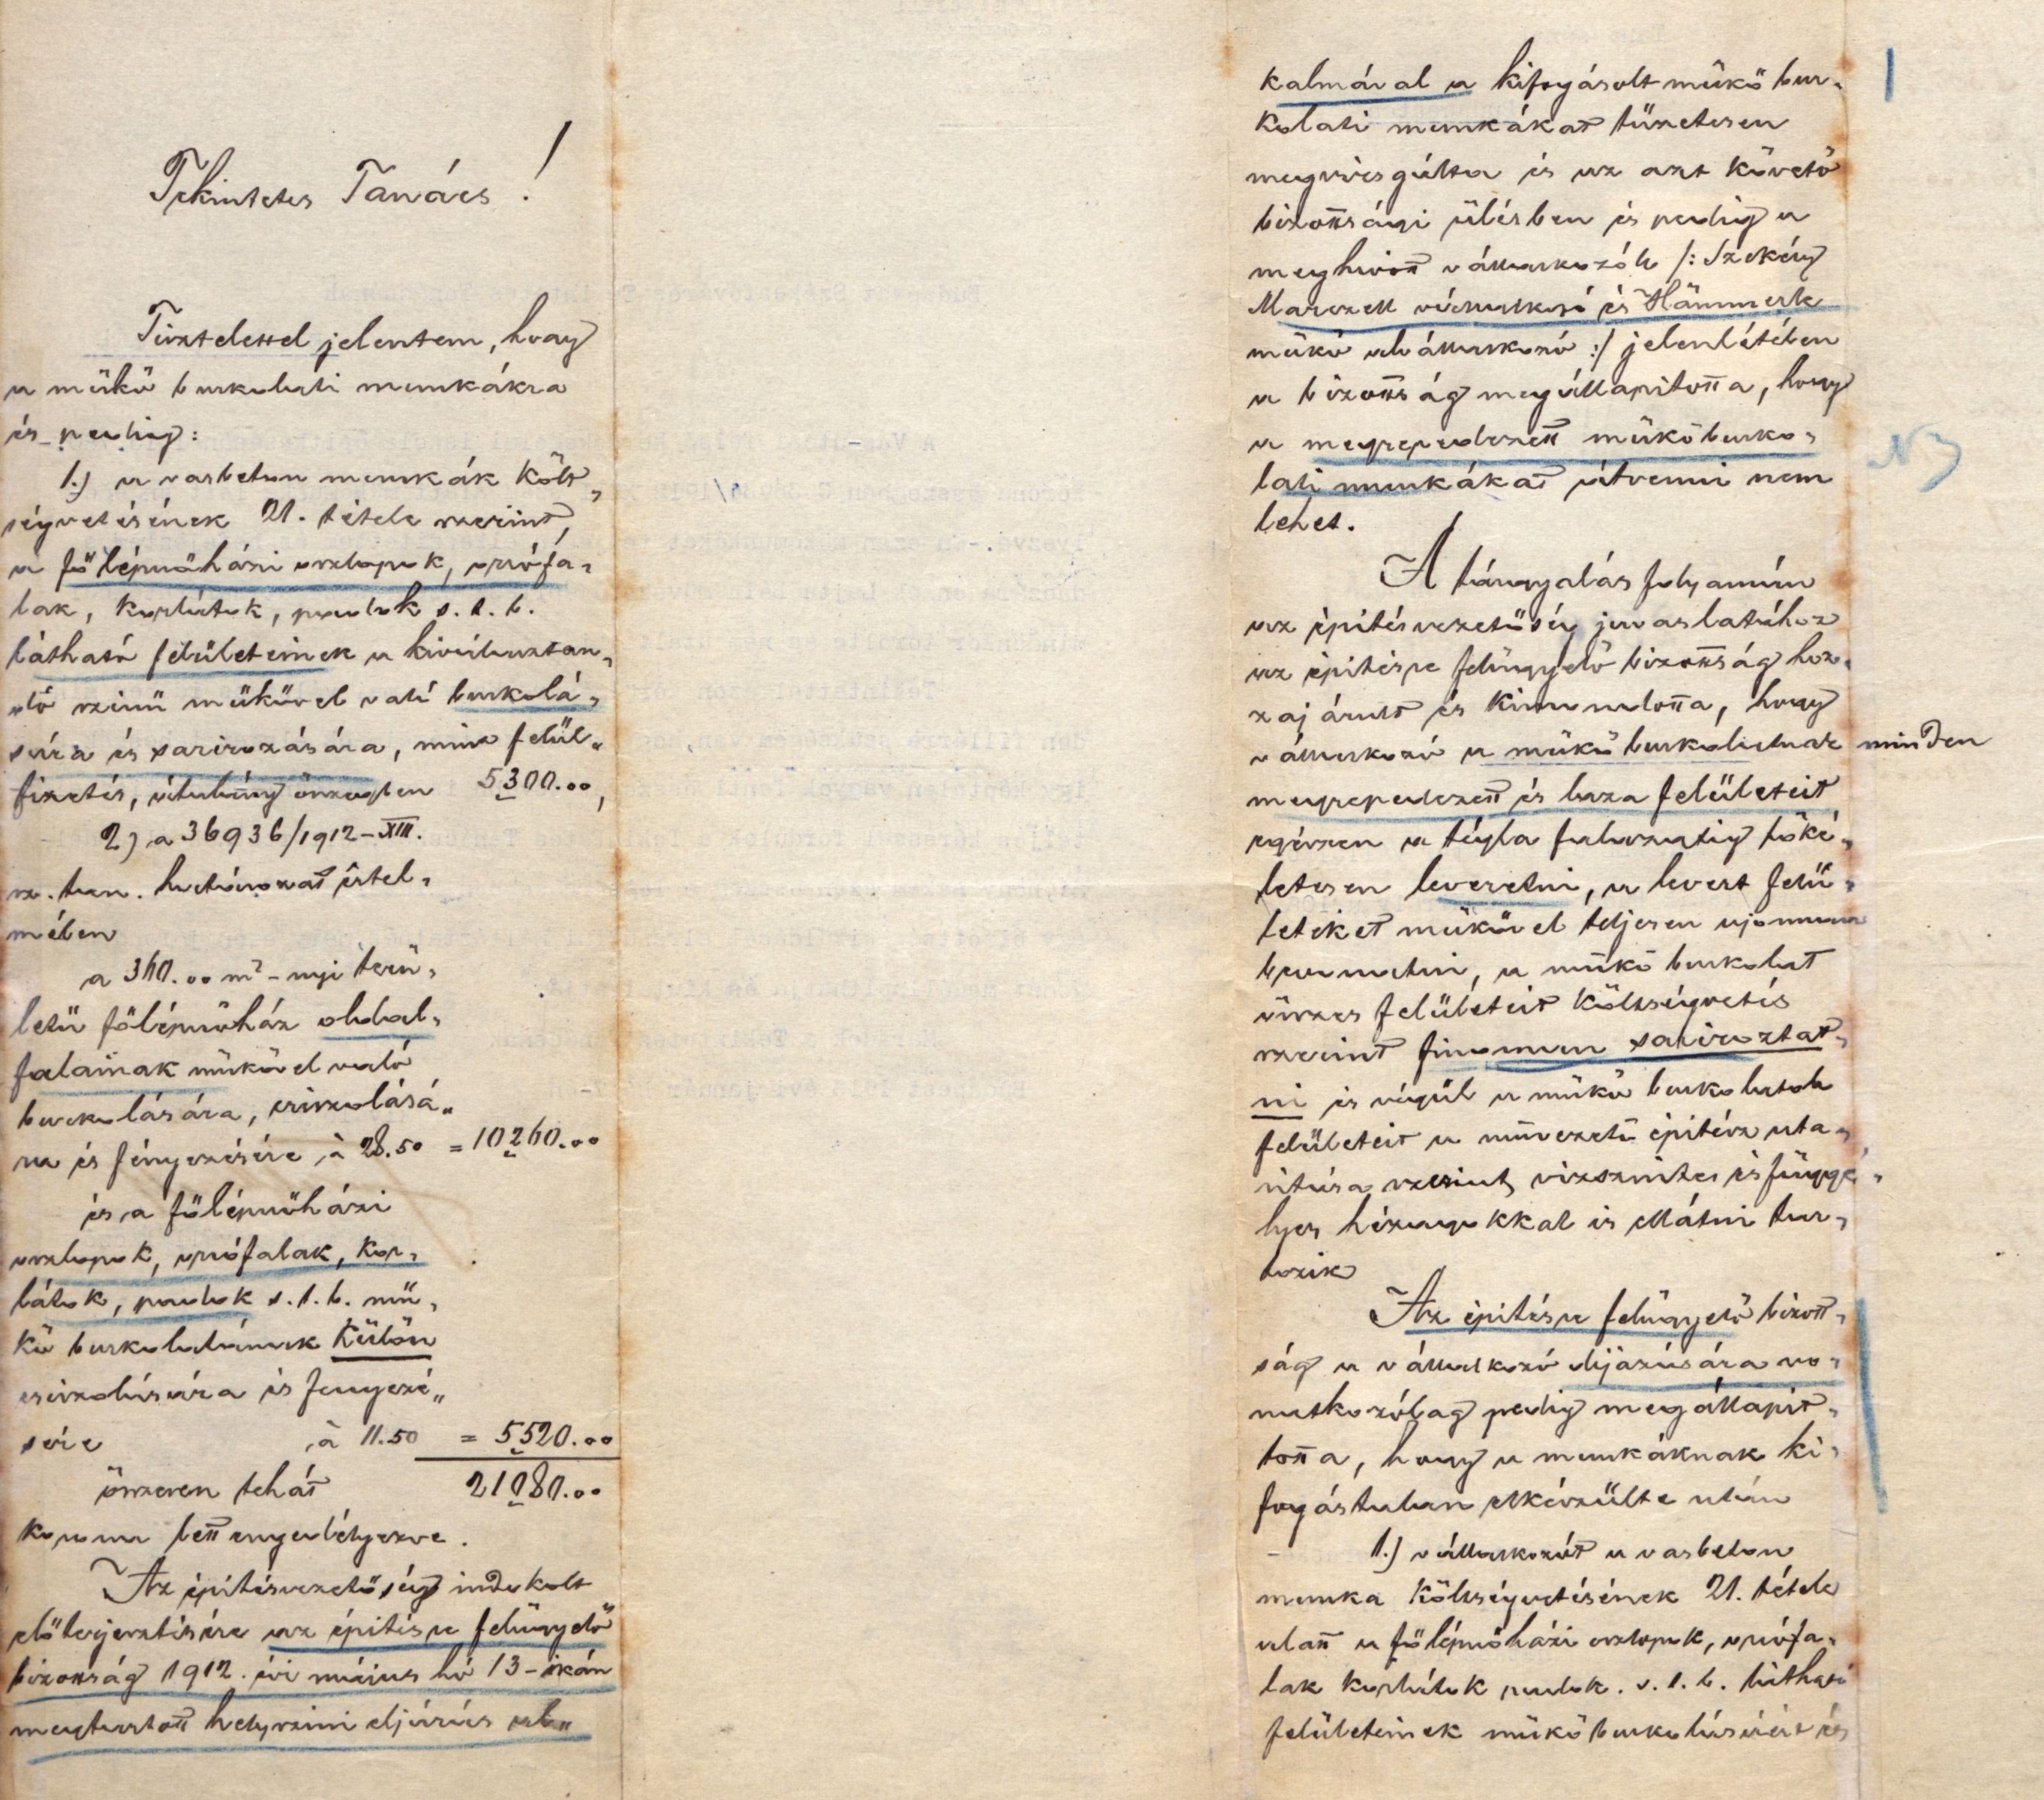 Tekintetes Tanács!
Tisztelettel jelentem, hogy
a mükö burkolati munkákra
és pedig:
1.) a vasbeton munkák költ„
ségvetésének 21. tétele szerint,
a fölépcsöházi oszlopok, orsófa„
lak, korlátok, padok s. t. b.
látható felületeinek a kiválasztan„
dó szinü mükövel való burkolá„
sára és sarirozására, mint felül„
fizetés, átalány összegben 5300.00,
2) a 36936/1912-XIII.
sz. tan. határozat értel„
mében
a 360.00 m²-nyi terü„
letü fölépcsöház oldal„
falainak mükövel való
burkolására, csiszolásá„
ra és fényezésére à 28.50 = 10260.00
és a fölépcsöházi
oszlopok, orsófalak, kor„
látok, padok s. t. b. mü„
kö burkolatának külön
csiszolására és fényezé„
sére à 11.50 = 5520.00
összesen tehát 21080.00
korona lett engedélyezve.
Az épitésvezetöség indokolt
elöterjesztésére az épitésre felügyelö
bizottság 1912. évi május hó 13-ikán
megtartott helyszini eljárás al„
kalmával a kifogásolt mükö bur„
kolati munkákat tüzetesen
megvizsgálta és az azt követö
bizottsági ülésben és pedig a
meghivott vállalkozók /: Székely
Marczell vállalkozó és Hämmerle
mükö alvállalkozó :/ jelenlétében
a bizottság megállapitotta, hogy
a megrepedezett mükö burko„
lati munkákat átvenni nem
lehet.
A tárgyalás folyamán
az épitésvezetöség javaslatához
az épitésre felügyelö bizottság hoz„
zajárult és kimondotta, hogy
vállalkozó a mükö burkolatnak minden
megrepedezett és laza felületeit
egészen a tégla falazatig töké„
letesen leveretni, a levert felü„
leteket mükövel teljesen ujonnan
bevonatni, a mükö burkolat
összes felületeit költségvetés
szerint finoman sariroztat„
ni és végül a mükö burkolatok
felületeit a müvezetö épitész uta„
sitása szerint, vizszintes és függö„
lyes hézagokkal is ellátni tar„
tozik
Az épitésre felügyelö bizott„
ság a vállalkozó dijazására vo„
natkozólag pedig megállapit„
totta, hogy a munkáknak ki„
fogástalan elkészülte után
1.) vállalkozót a vasbeton
munka költségvetésének 21. tétele
alatt a fölépcsöházi oszlopok, orsófa„
lak korlátok padok. s. t. b. látható
felületeinek mükö burkolásáért és